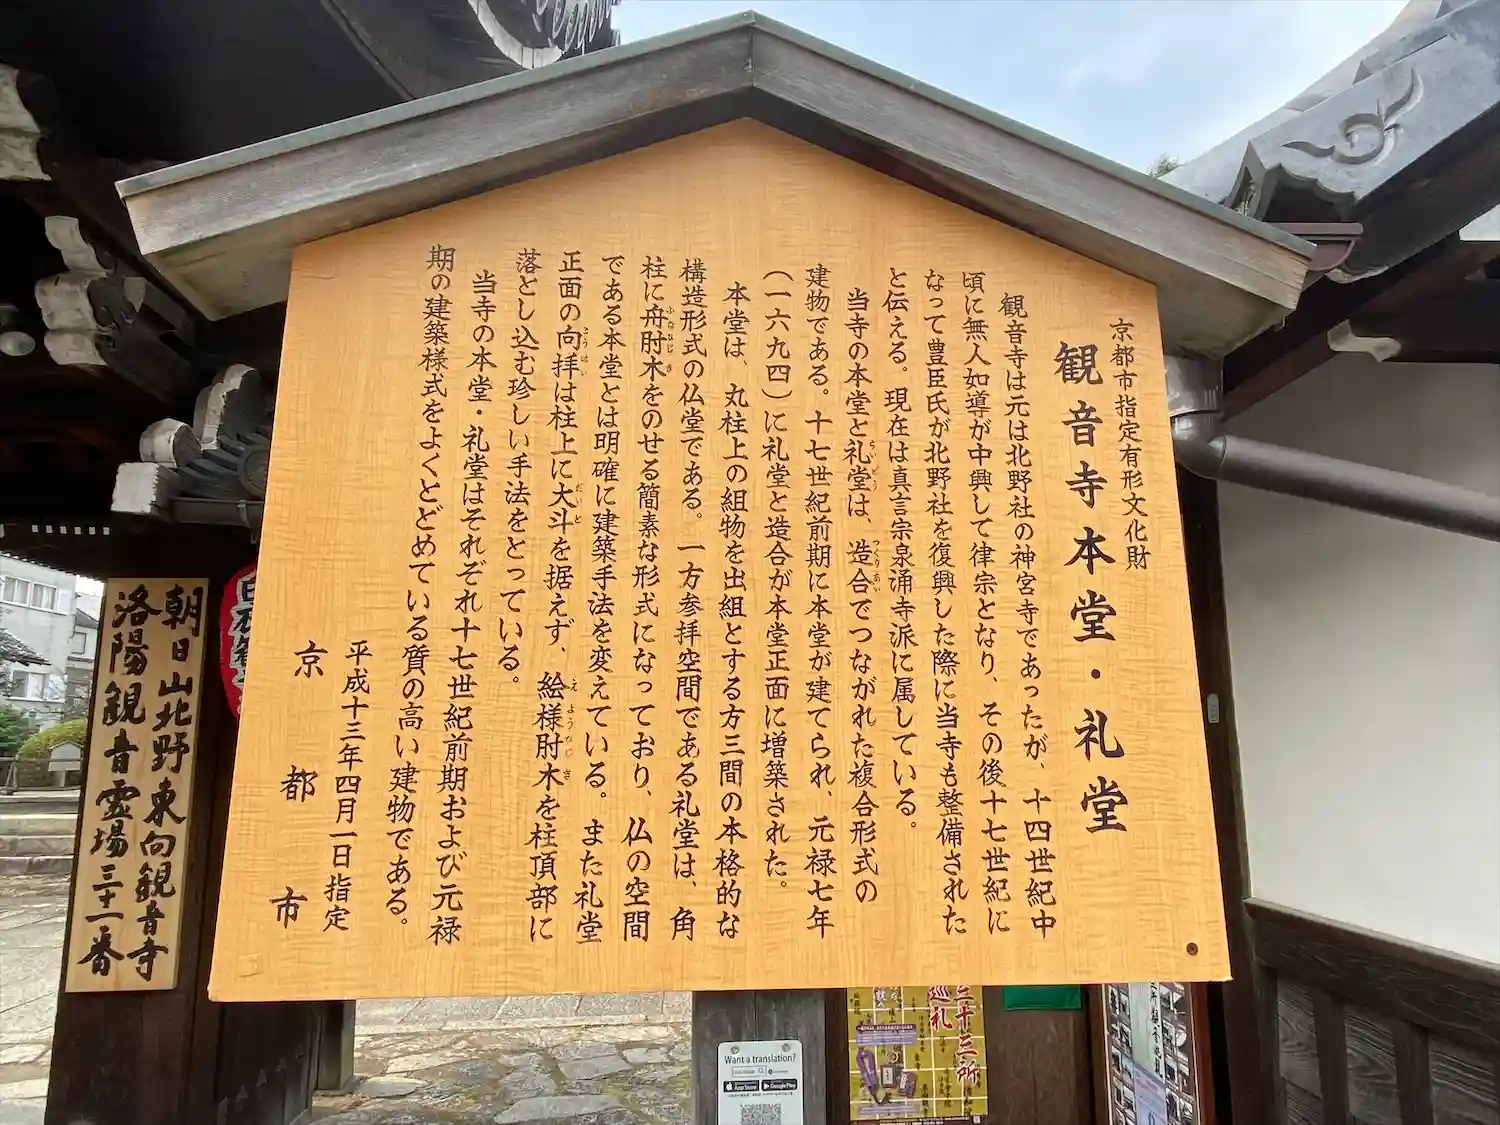 京都市指定有形文化財
観音寺本堂・礼堂
観音寺は元は北野社の神宮寺であったが、十四世紀中
頃に無人如導が中興して律宗となり、その後十七世紀に
なって豊臣氏が北野社を復興した際に当寺も整備された
と伝える。現在は真言宗泉涌寺派に属している。
当寺の本堂と礼堂は、造合でつながれた複合形式の
らいどう
つくりあい
建物である。十七世紀前期に本堂が建てられ、元禄七年
(一六九四)に礼堂と造合が本堂正面に増築された。
本堂は、丸柱上の組物を出組とする方三間の本格的な
構造形式の仏堂である。一方参拝空間である礼堂は、角
柱に舟肘木をのせる簡素な形式になっており、仏の空間
ふなひじき
である本堂とは明確に建築手法を変えている。また礼堂
正面の向拝は柱上に大斗を据えず、絵様肘木を柱頂部に
こうはい
だいと
えようひじき
落とし込む珍しい手法をとっている。
当寺の本堂・礼堂はそれぞれ十七世紀前期および元禄
期の建築様式をよくとどめている質の高い建物である。
平成十三年四月一日指定
京都市
朝日山北野東向観音寺
洛陽観音霊場三十一番
三十三所
巡礼
Want a translation?
App Store
Google Play